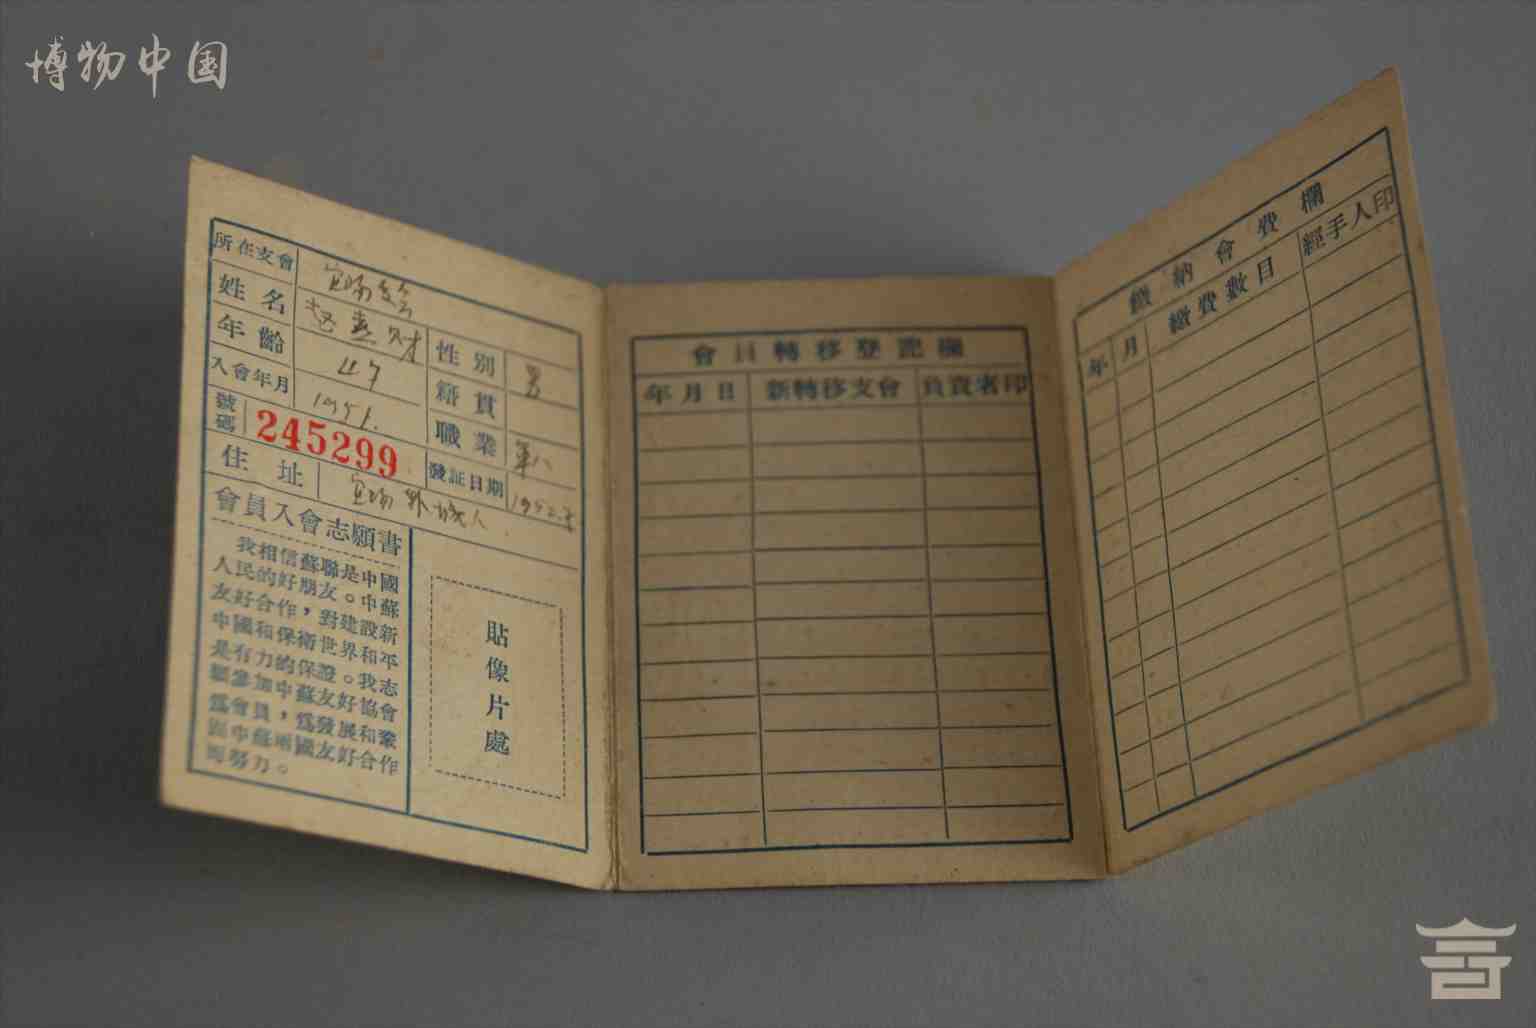 博物中国
所在支會
姓名
年齡 47
入會年月 1951.
號碼 245299
住址
性別 男
籍貫
職業
發証日期 1952.
會員入會志願書
我相信蘇聯是中國
人民的好朋友。中蘇
友好合作，對建設新
中國和保衛世界和平
是有力的保證。我志
願參加中蘇友好協會
爲會員，爲發展和鞏
固中蘇兩國友好合作
而努力。
貼像片處
會員轉移登記欄
年月日 新轉移支會 負責者印
繳納會費欄
年 月 繳費數目 經手人印